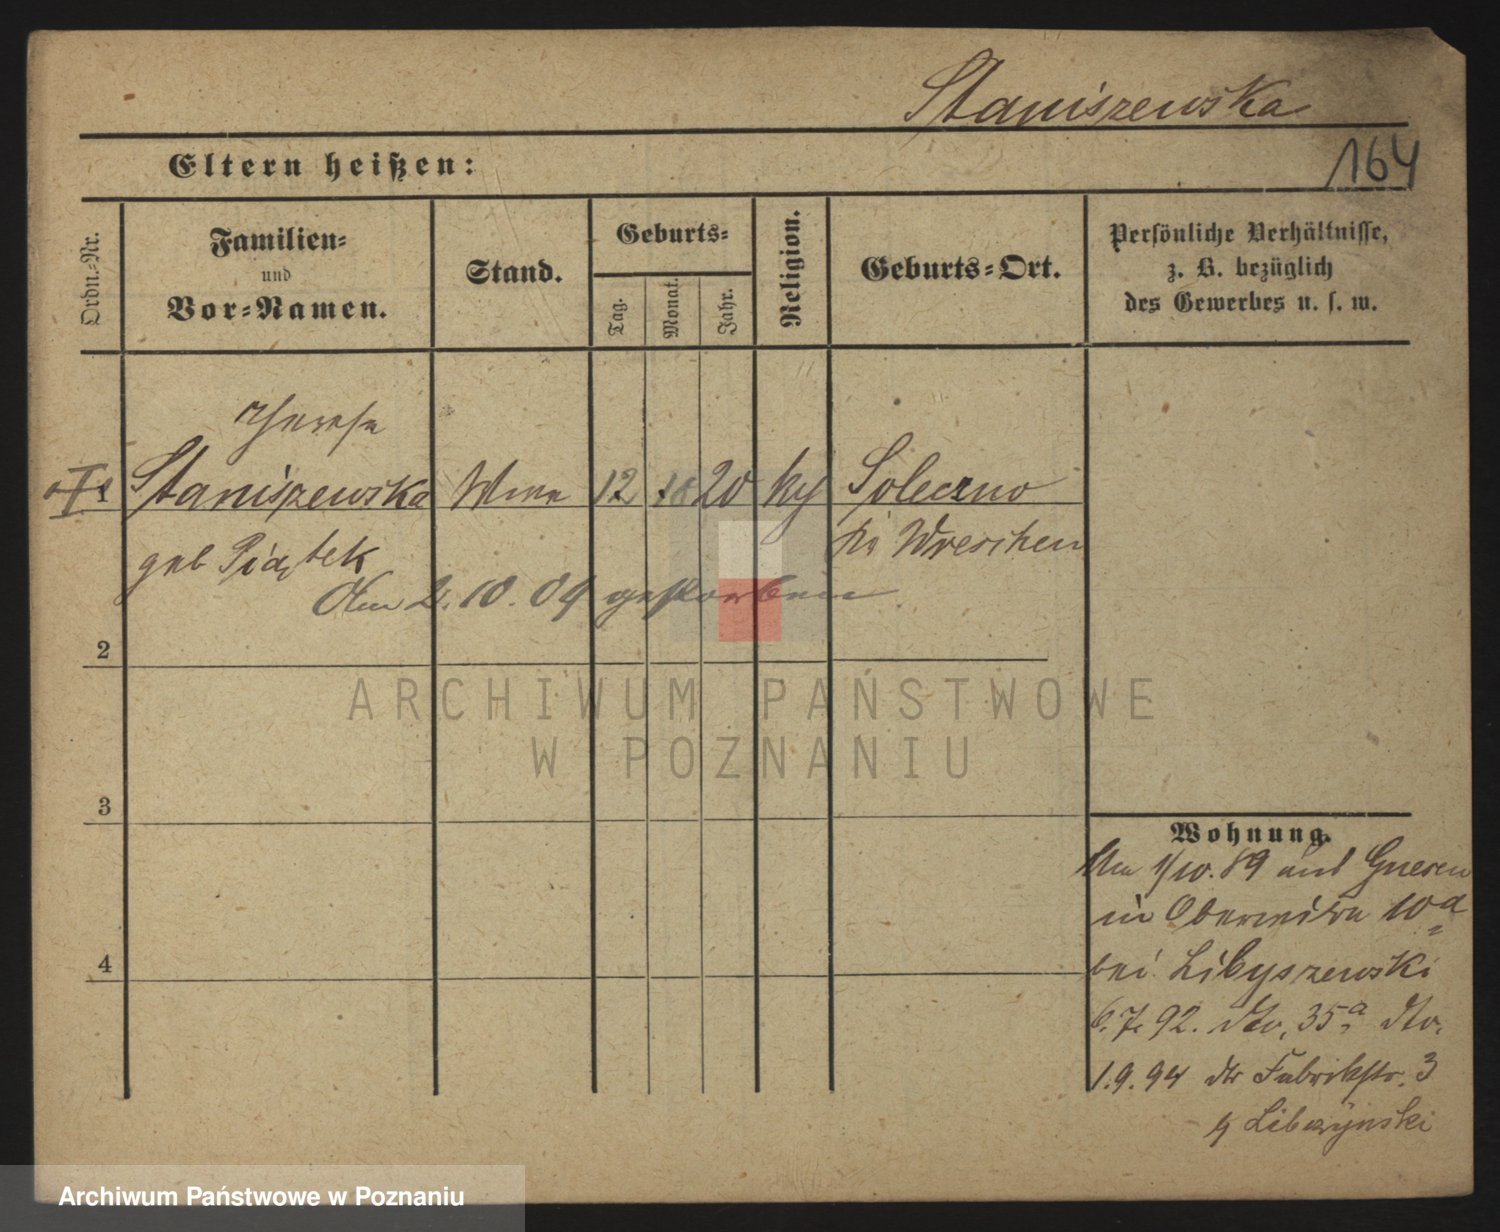 Staniszewska
164
Eltern heißen:
Ordn.-Nr.
Familien-
und
Vor-Namen.
Stand.
Geburts-
Tag.
Monat.
Jahr.
Religion.
Geburts-Ort.
Persönliche Verhältnisse,
z. B. bezüglich
des Gewerbes u. s. w.
Therese
1 Staniszewska Wwe 12 20 Soleczno
geb Piątek Kr Wreschen
Am 2.10.09 gestorben
2
ARCHIWUM PAŃSTWOWE
W POZNANIU
3
Wohnung.
Am 1/10.89 aus Gnesen
in Oberwilda 10a
bei Libyszewski
4
6.7.92. dto, 35a dto.
1.9.94 dto Fabrikstr. 3
Libczynski
Archiwum Państwowe w Poznaniu